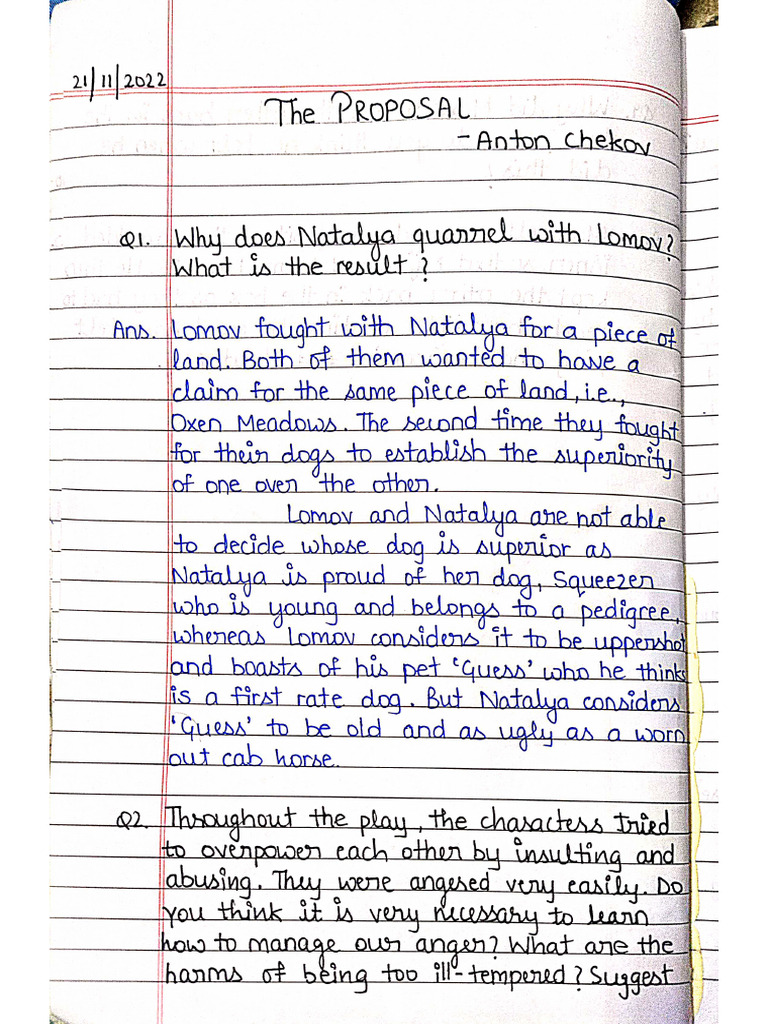 21/11/2022
The PROPOSAL
- Anton Chekov
Q1. Why does Natalya quarrel with Lomov?
What is the result?
Ans. Lomov fought with Natalya for a piece of
land. Both of them wanted to have a
claim for the same piece of land, i.e.,
Oxen Meadows. The second time they fought
for their dogs to establish the superiority
of one over the other.
Lomov and Natalya are not able
to decide whose dog is superior as
Natalya is proud of her dog, Squeezer
who is young and belongs to a pedigree,
whereas Lomov considers it to be uppershot
and boasts of his pet 'Guess' who he thinks
is a first rate dog. But Natalya considers
'Guess' to be old and as ugly as a worn
out cab horse.
Q2. Throughout the play, the characters tried
to overpower each other by insulting and
abusing. They were angered very easily. Do
you think it is very necessary to learn
how to manage our anger? What are the
harms of being too ill-tempered? Suggest